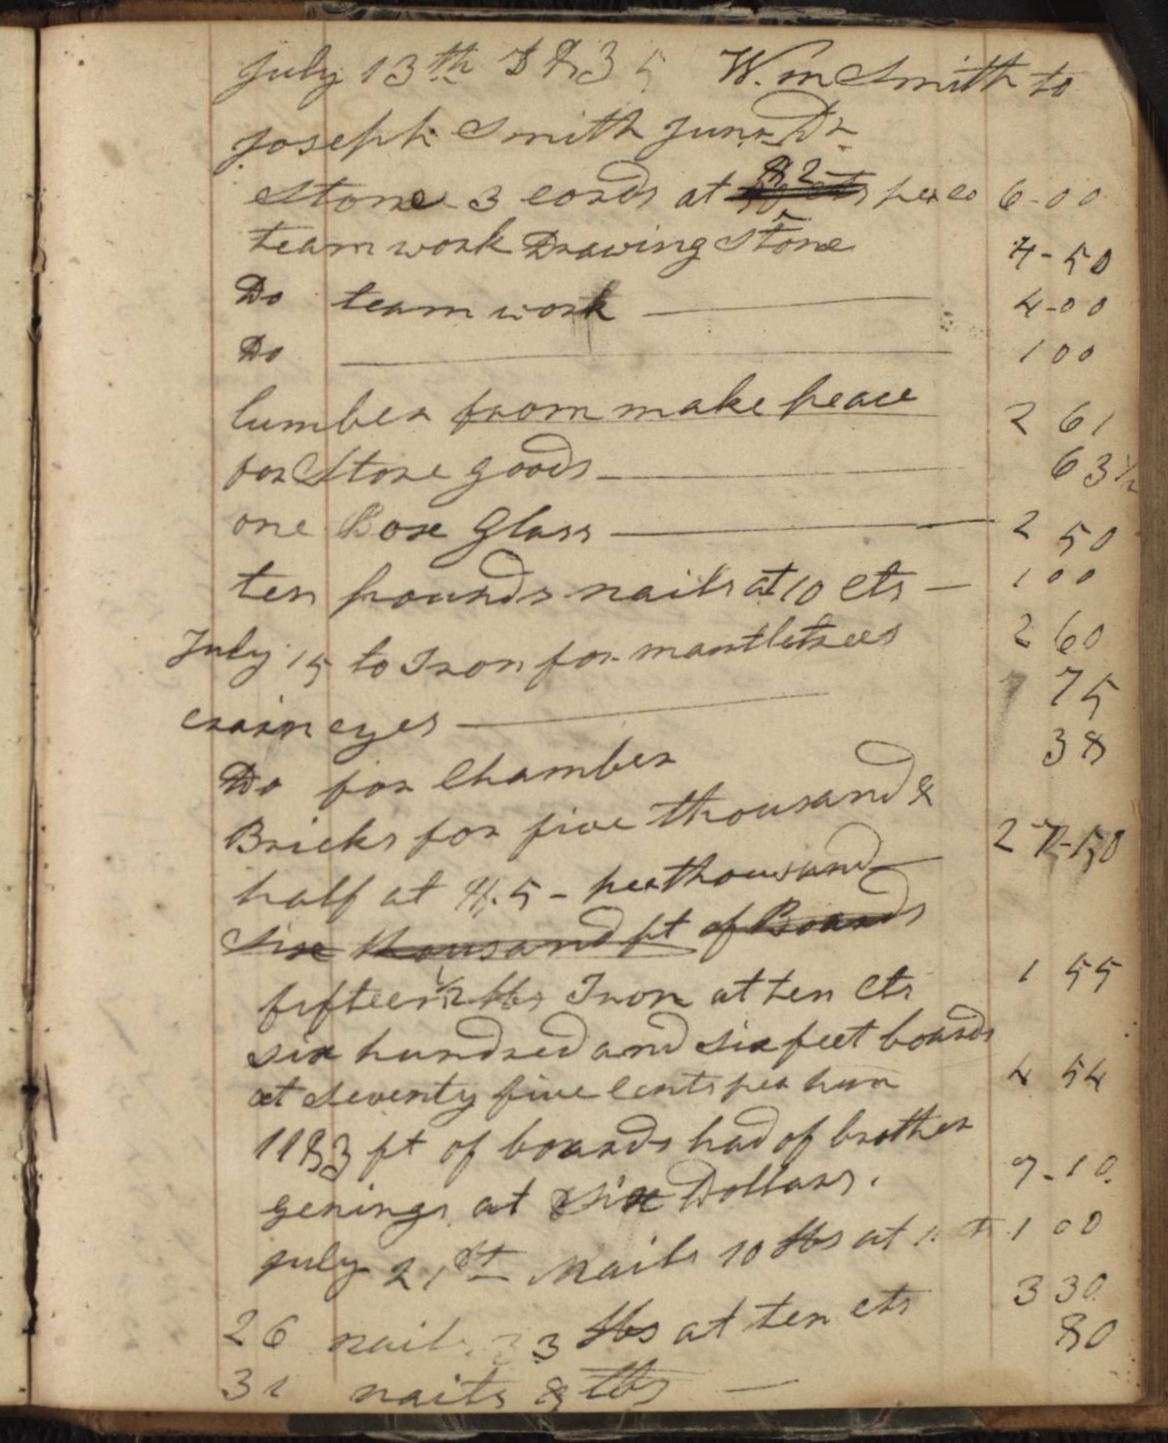 July 13th 1835 Wm Smith to
Joseph Smith Junr Dr
Stone 3 cords at $2 per co 6-00
team work Drawing Stone 4-50
Do team work 4-00
Do 1 00
lumber from make peace 2 61
for Store goods 63 1/2
one Box Glass 2 50
ten pounds nails at 10 cts 1 00
July 15 to Iron for mantletrees 2 60
crain eyes 75
Do for Chamber 38
Bricks for five thousand &
half at $.5- per thousand 27-50
Six thousand ft of Boards
fifteen 1/2 lbs Iron at ten cts 1 55
six hundred and six feet boards
at seventy five cents per hun 4 54
1183 ft of boards had of brother
genings at Six Dollars. 7-10.
July 21st Nails 10 lbs at 1 00
26 nails 33 lbs at ten cts 3 30
31 nails 8 lbs 80